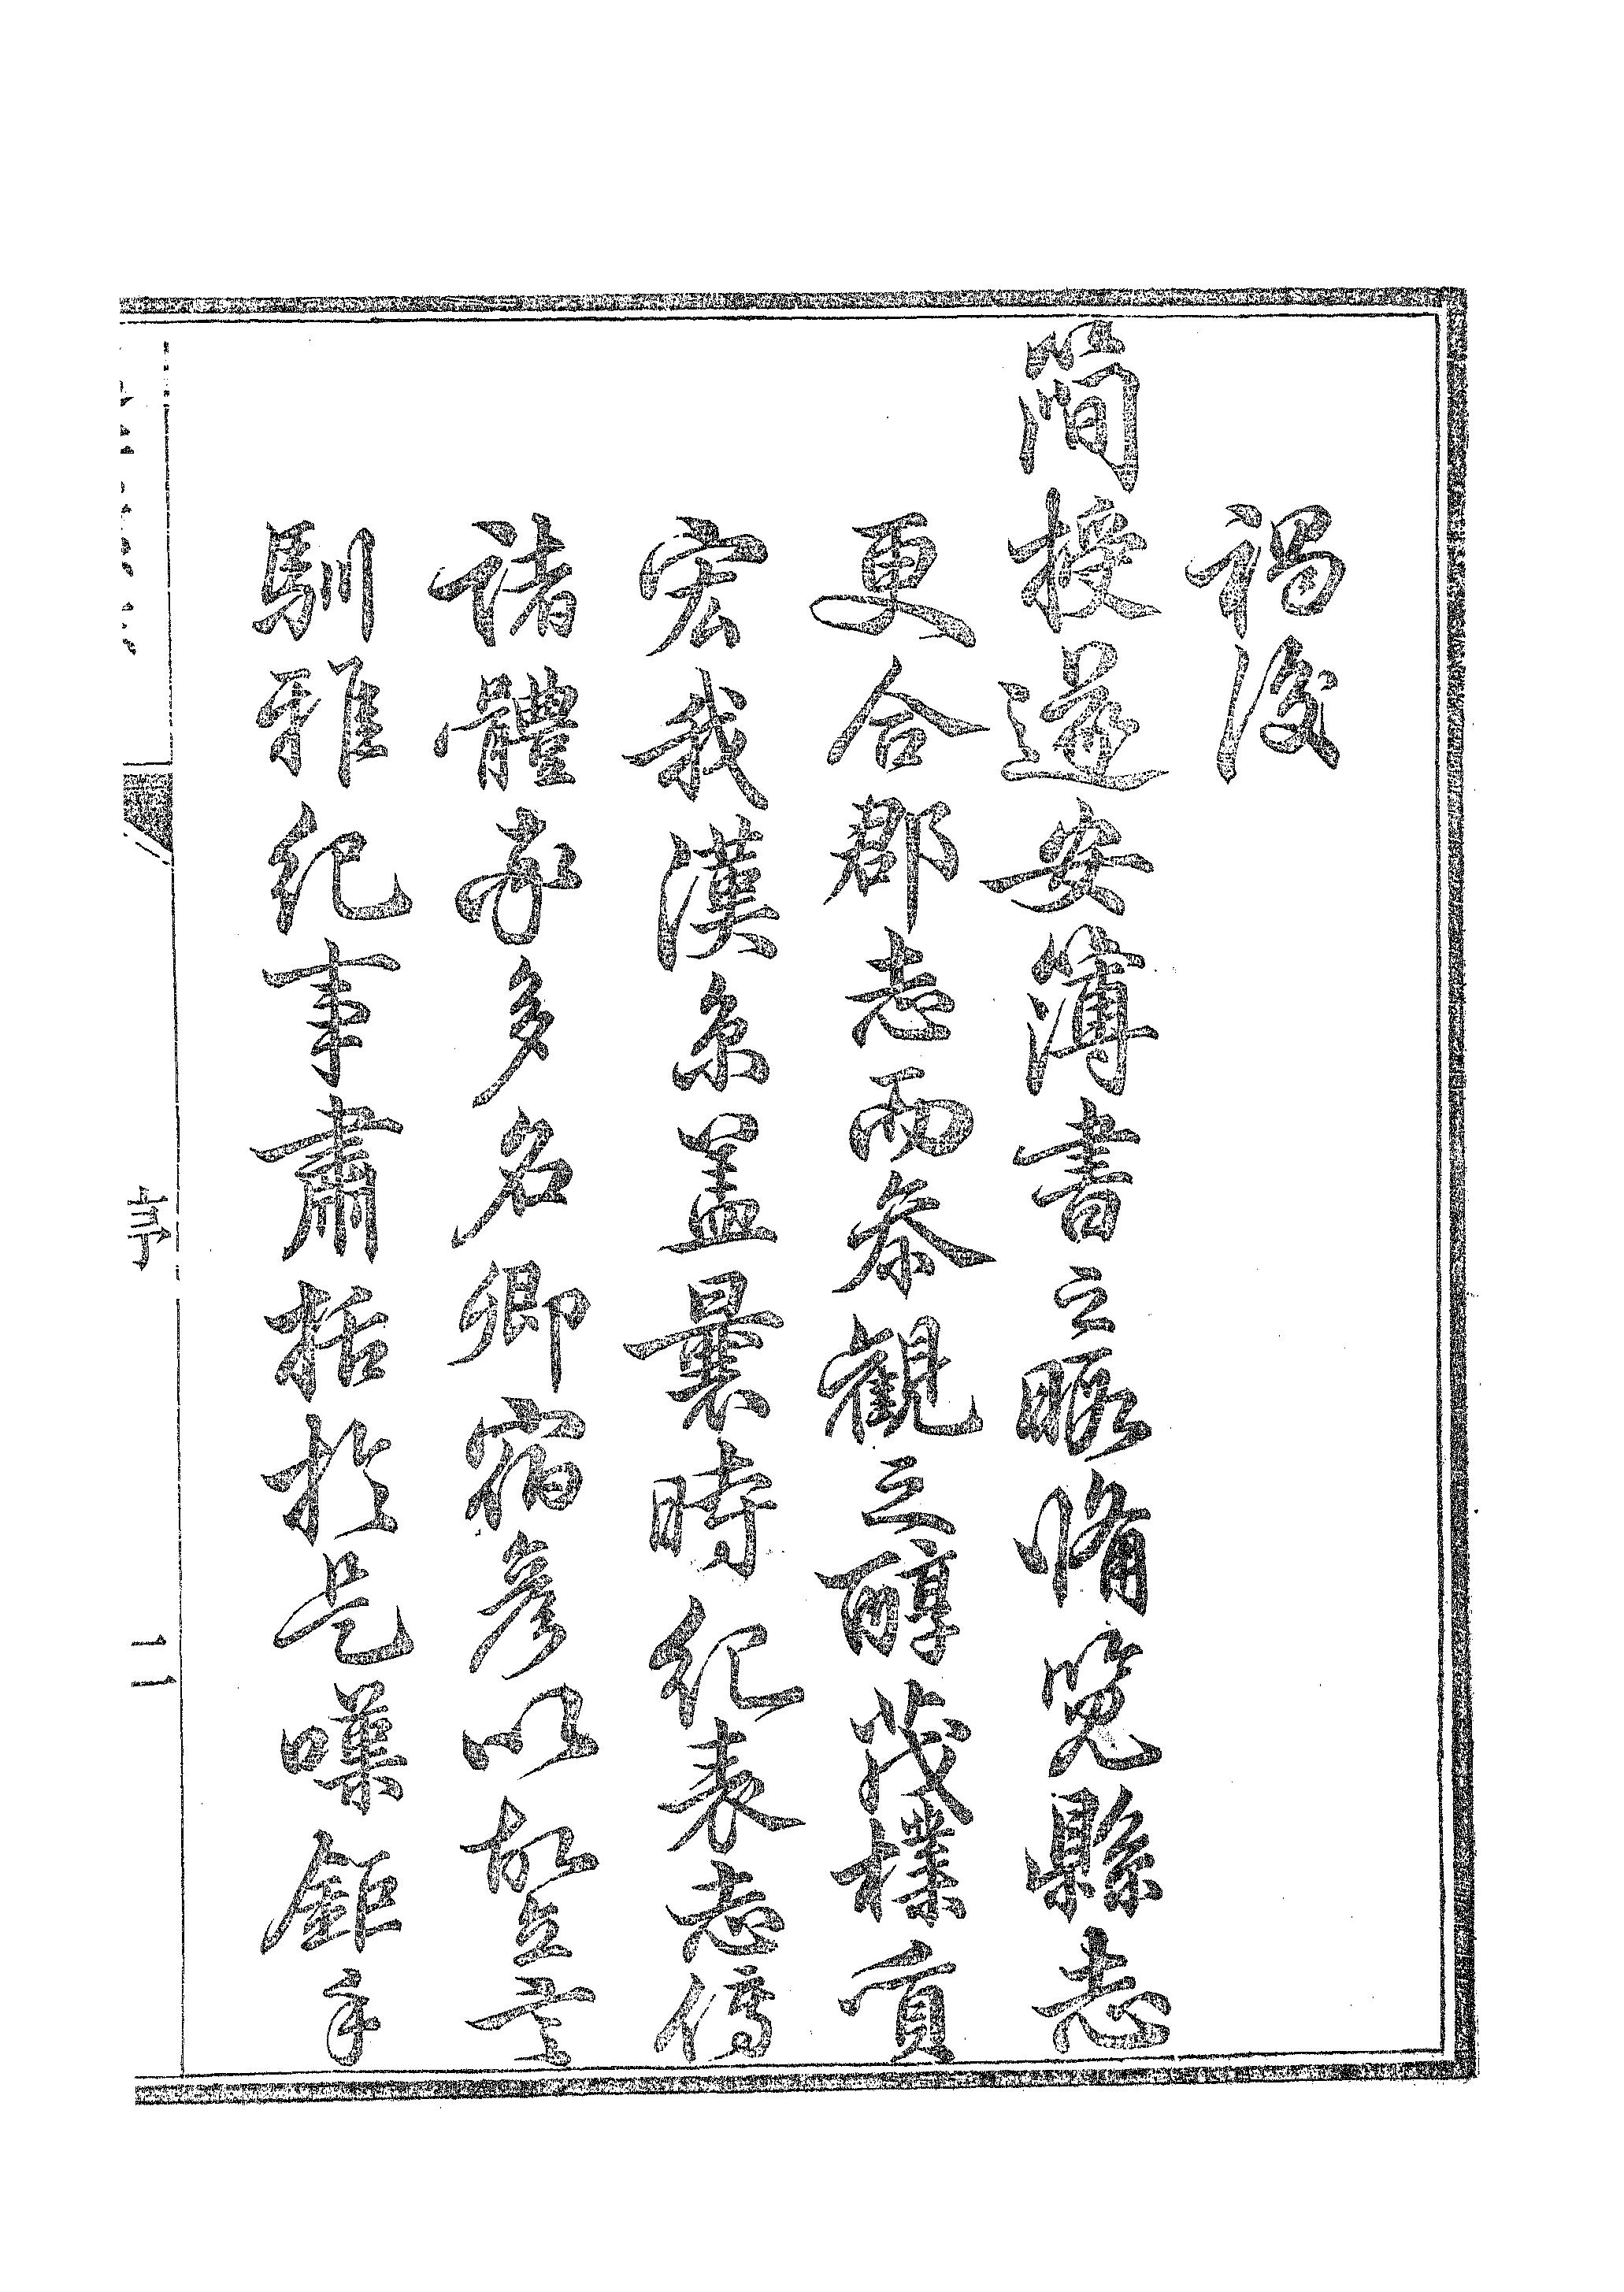 禍後
簡授遂安簿書之暇脩覽縣志
更合郡志而參觀之醇茂樸質
宏我漢京蓋曩時紀表志傳
諸體率多名卿宿彥以故立言
馴雅紀事肅括於是嘆鉅手
序 二